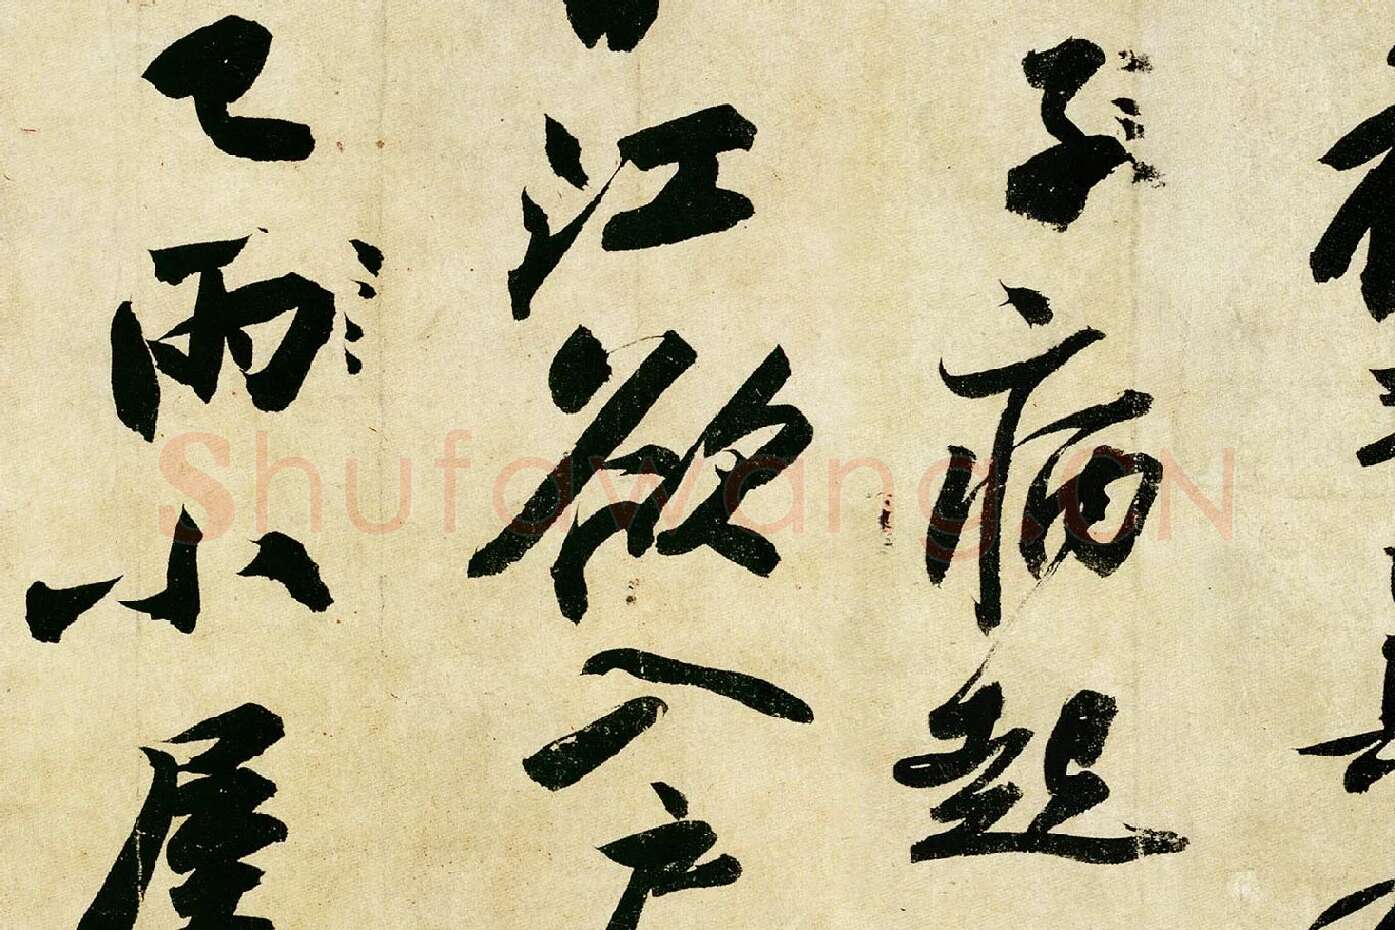 子病起
江欲入户
已雨小屋
Shufawang.CN